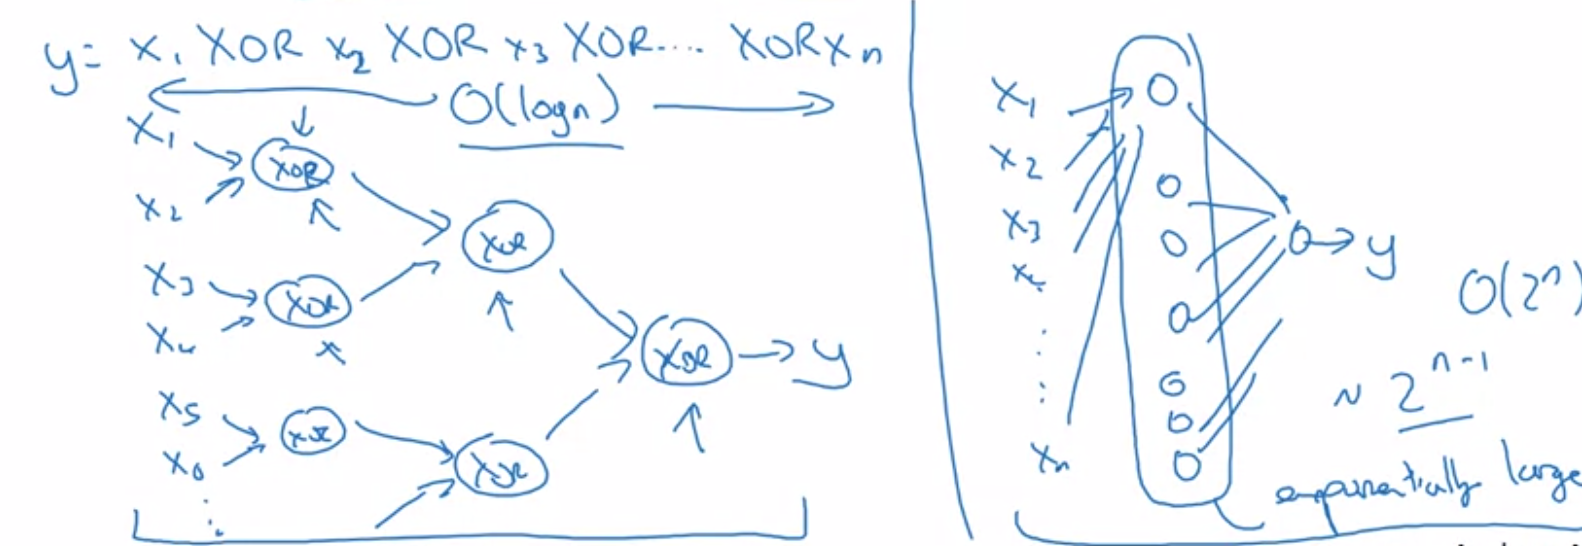 y= x1 XOR x2 XOR x3 XOR.... XOR xn
O(logn)
x1
XOR
x2
XOR
x3
XOR
x4
XOR
y
x5
XOR
x6
XOR
x1
x2
x3
xn
y
O(2^n)
~ 2^n-1
exponentially large